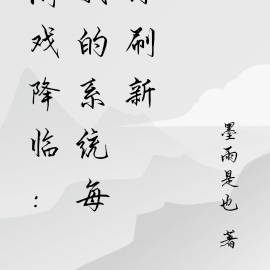 戏降临：
的系统每
刷新
墨雨是也 著